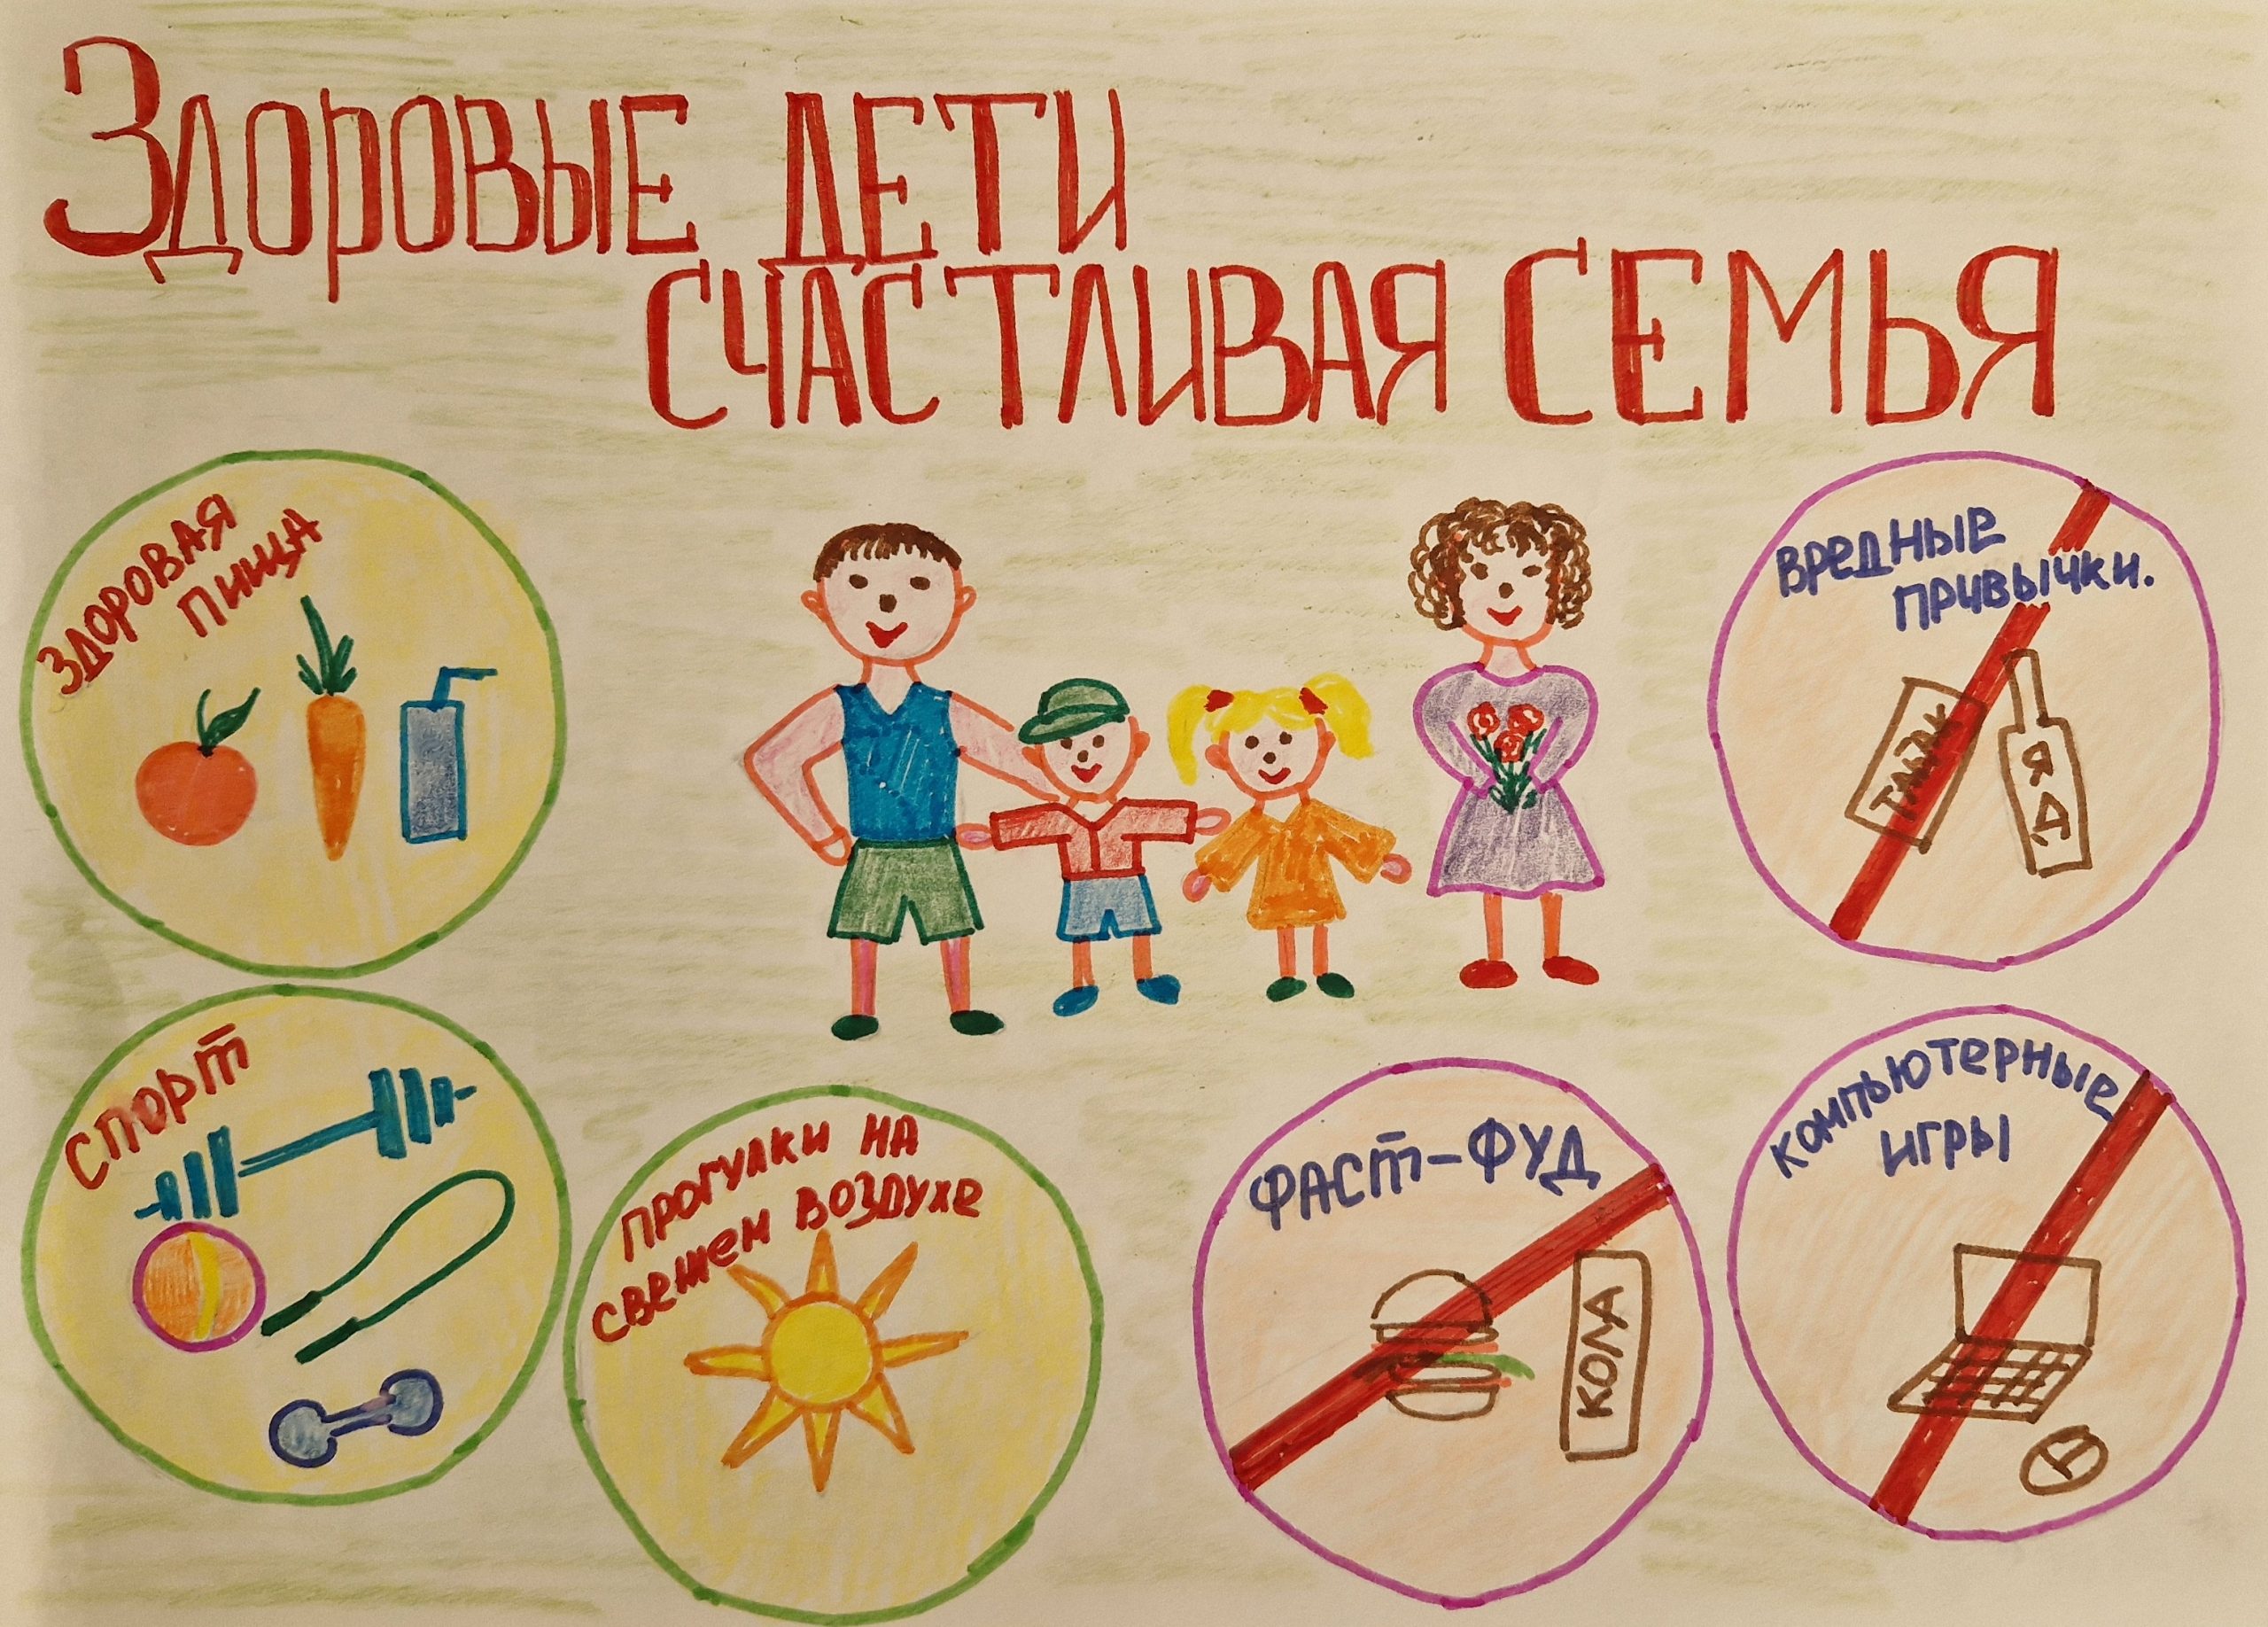 Здоровые дети
счастливая семья
Здоровая
пища
Вредные
привычки.
Табак
Яд
Спорт
Прогулки на
свежем воздухе
Фаст-фуд
Кола
Компьютерные
игры